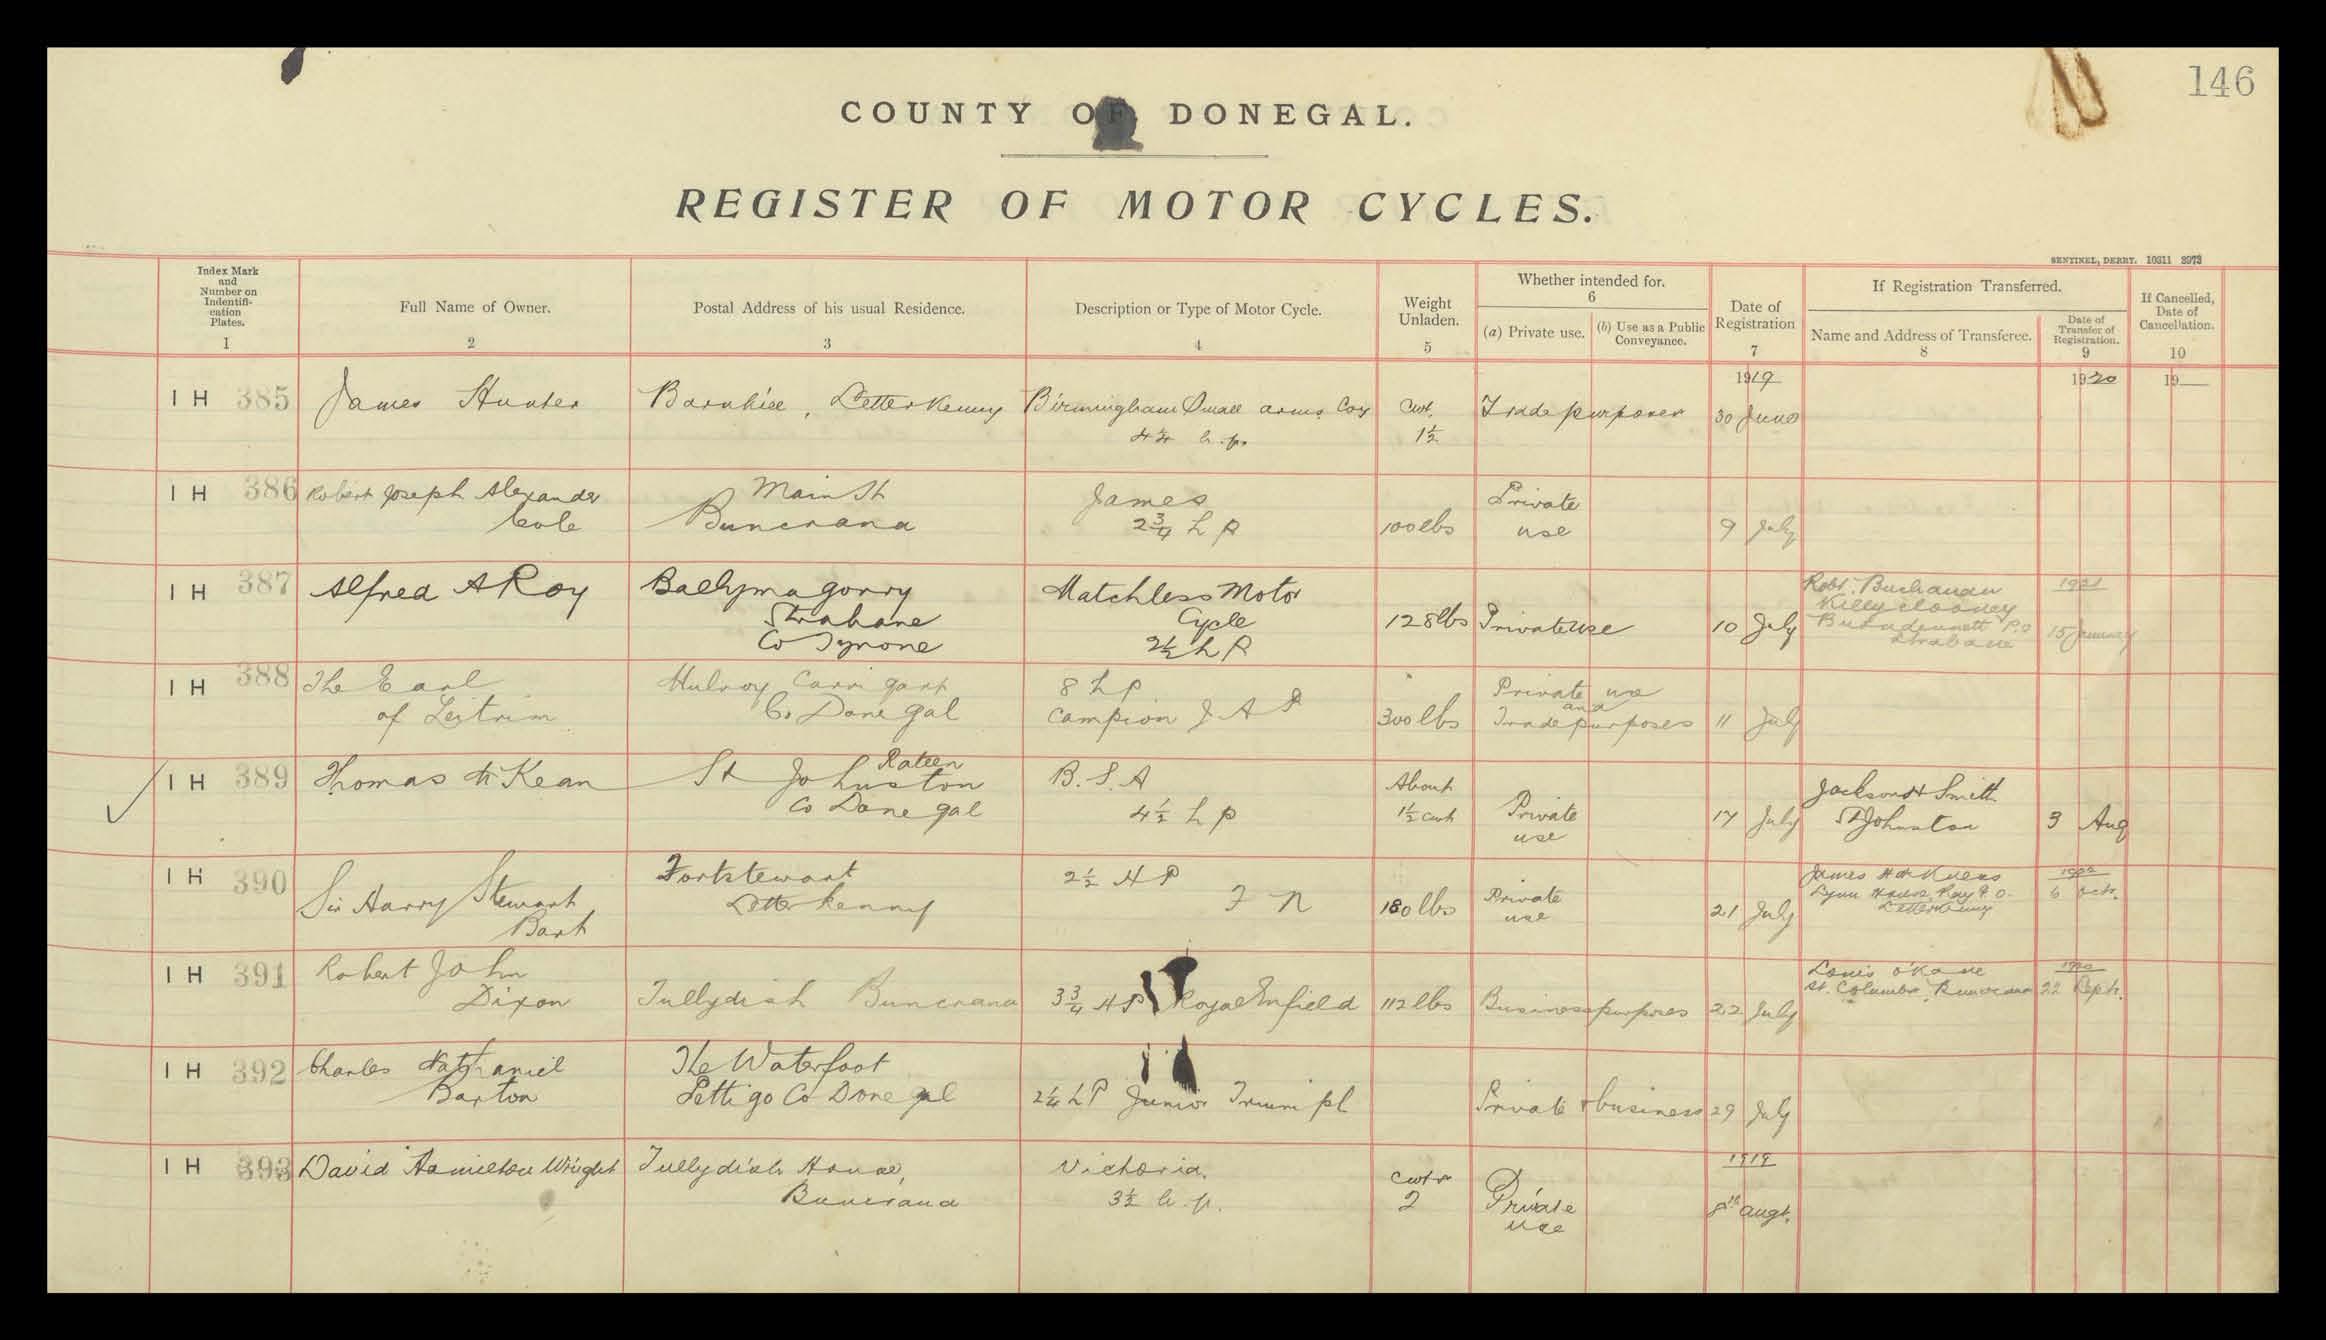 146
COUNTY OF DONEGAL.
REGISTER OF MOTOR CYCLES.
SENTINEL, DERRY. 10311 3973
Index Mark and Number on Indentifi-cation Plates.
1
Full Name of Owner.
2
Postal Address of his usual Residence.
3
Description or Type of Motor Cycle.
4
Weight Unladen.
5
Whether intended for.
6
(a) Private use.
(b) Use as a Public Conveyance.
Date of Registration
7
If Registration Transferred.
Name and Address of Transferee.
8
Date of Transfer of Registration.
9
If Cancelled, Date of Cancellation.
10
1919
1920
19
IH 385 James Hunter Barnhill, Letterkenny Birmingham Small arms Coy Cwt. Trade purposes 30 June
4¼ h.p. 1½
IH 386 Robert Joseph Alexander Main St James Private
Cole Buncrana 2¾ h p 100 lbs use 9 July
IH 387 Alfred A Roy Ballymagorry Matchless Motor Robt. Buchanan 1921
Strabane Cycle 128 lbs Private use 10 July Killyclooney
Co Tyrone 2½ h P Bunadennett P.O 15 January
Strabane
IH 388 The Earl Mulroy Carrigart 8 h p Private use
and
of Leitrim Co Donegal Campion J A P 300 lbs Trade purposes 11 July
IH 389 Thomas McKean Rateen
St Johnston B.S.A About Jackson Smith
Co Donegal 4½ h p 1½ cwt Private use 17 July St Johnston 3 Aug
IH 390 Sir Harry Stewart Fortstewart 2½ H P
Bart Letterkenny F N 180 lbs Private use 21 July
James 1922
Lynn House, Ray P.O. 6 Octr.
Letterkenny
IH 391 Robert John
Dixon Tullydish Buncrana 3¾ H P Royal Enfield 112 lbs Business purposes 22 July
Louis O'Kane 1920
St. Columbs, Buncrana 22 Septr.
IH 392 Charles Nathaniel The Waterfoot
Barton Pettigo Co Donegal 2¼ h P Junior Triumph Private & business 29 July
IH 393 David Hamilton Wright Tullydish House, Victoria. cwts 1919
Buncrana 3½ h.p. 2 Private use 8th augt.